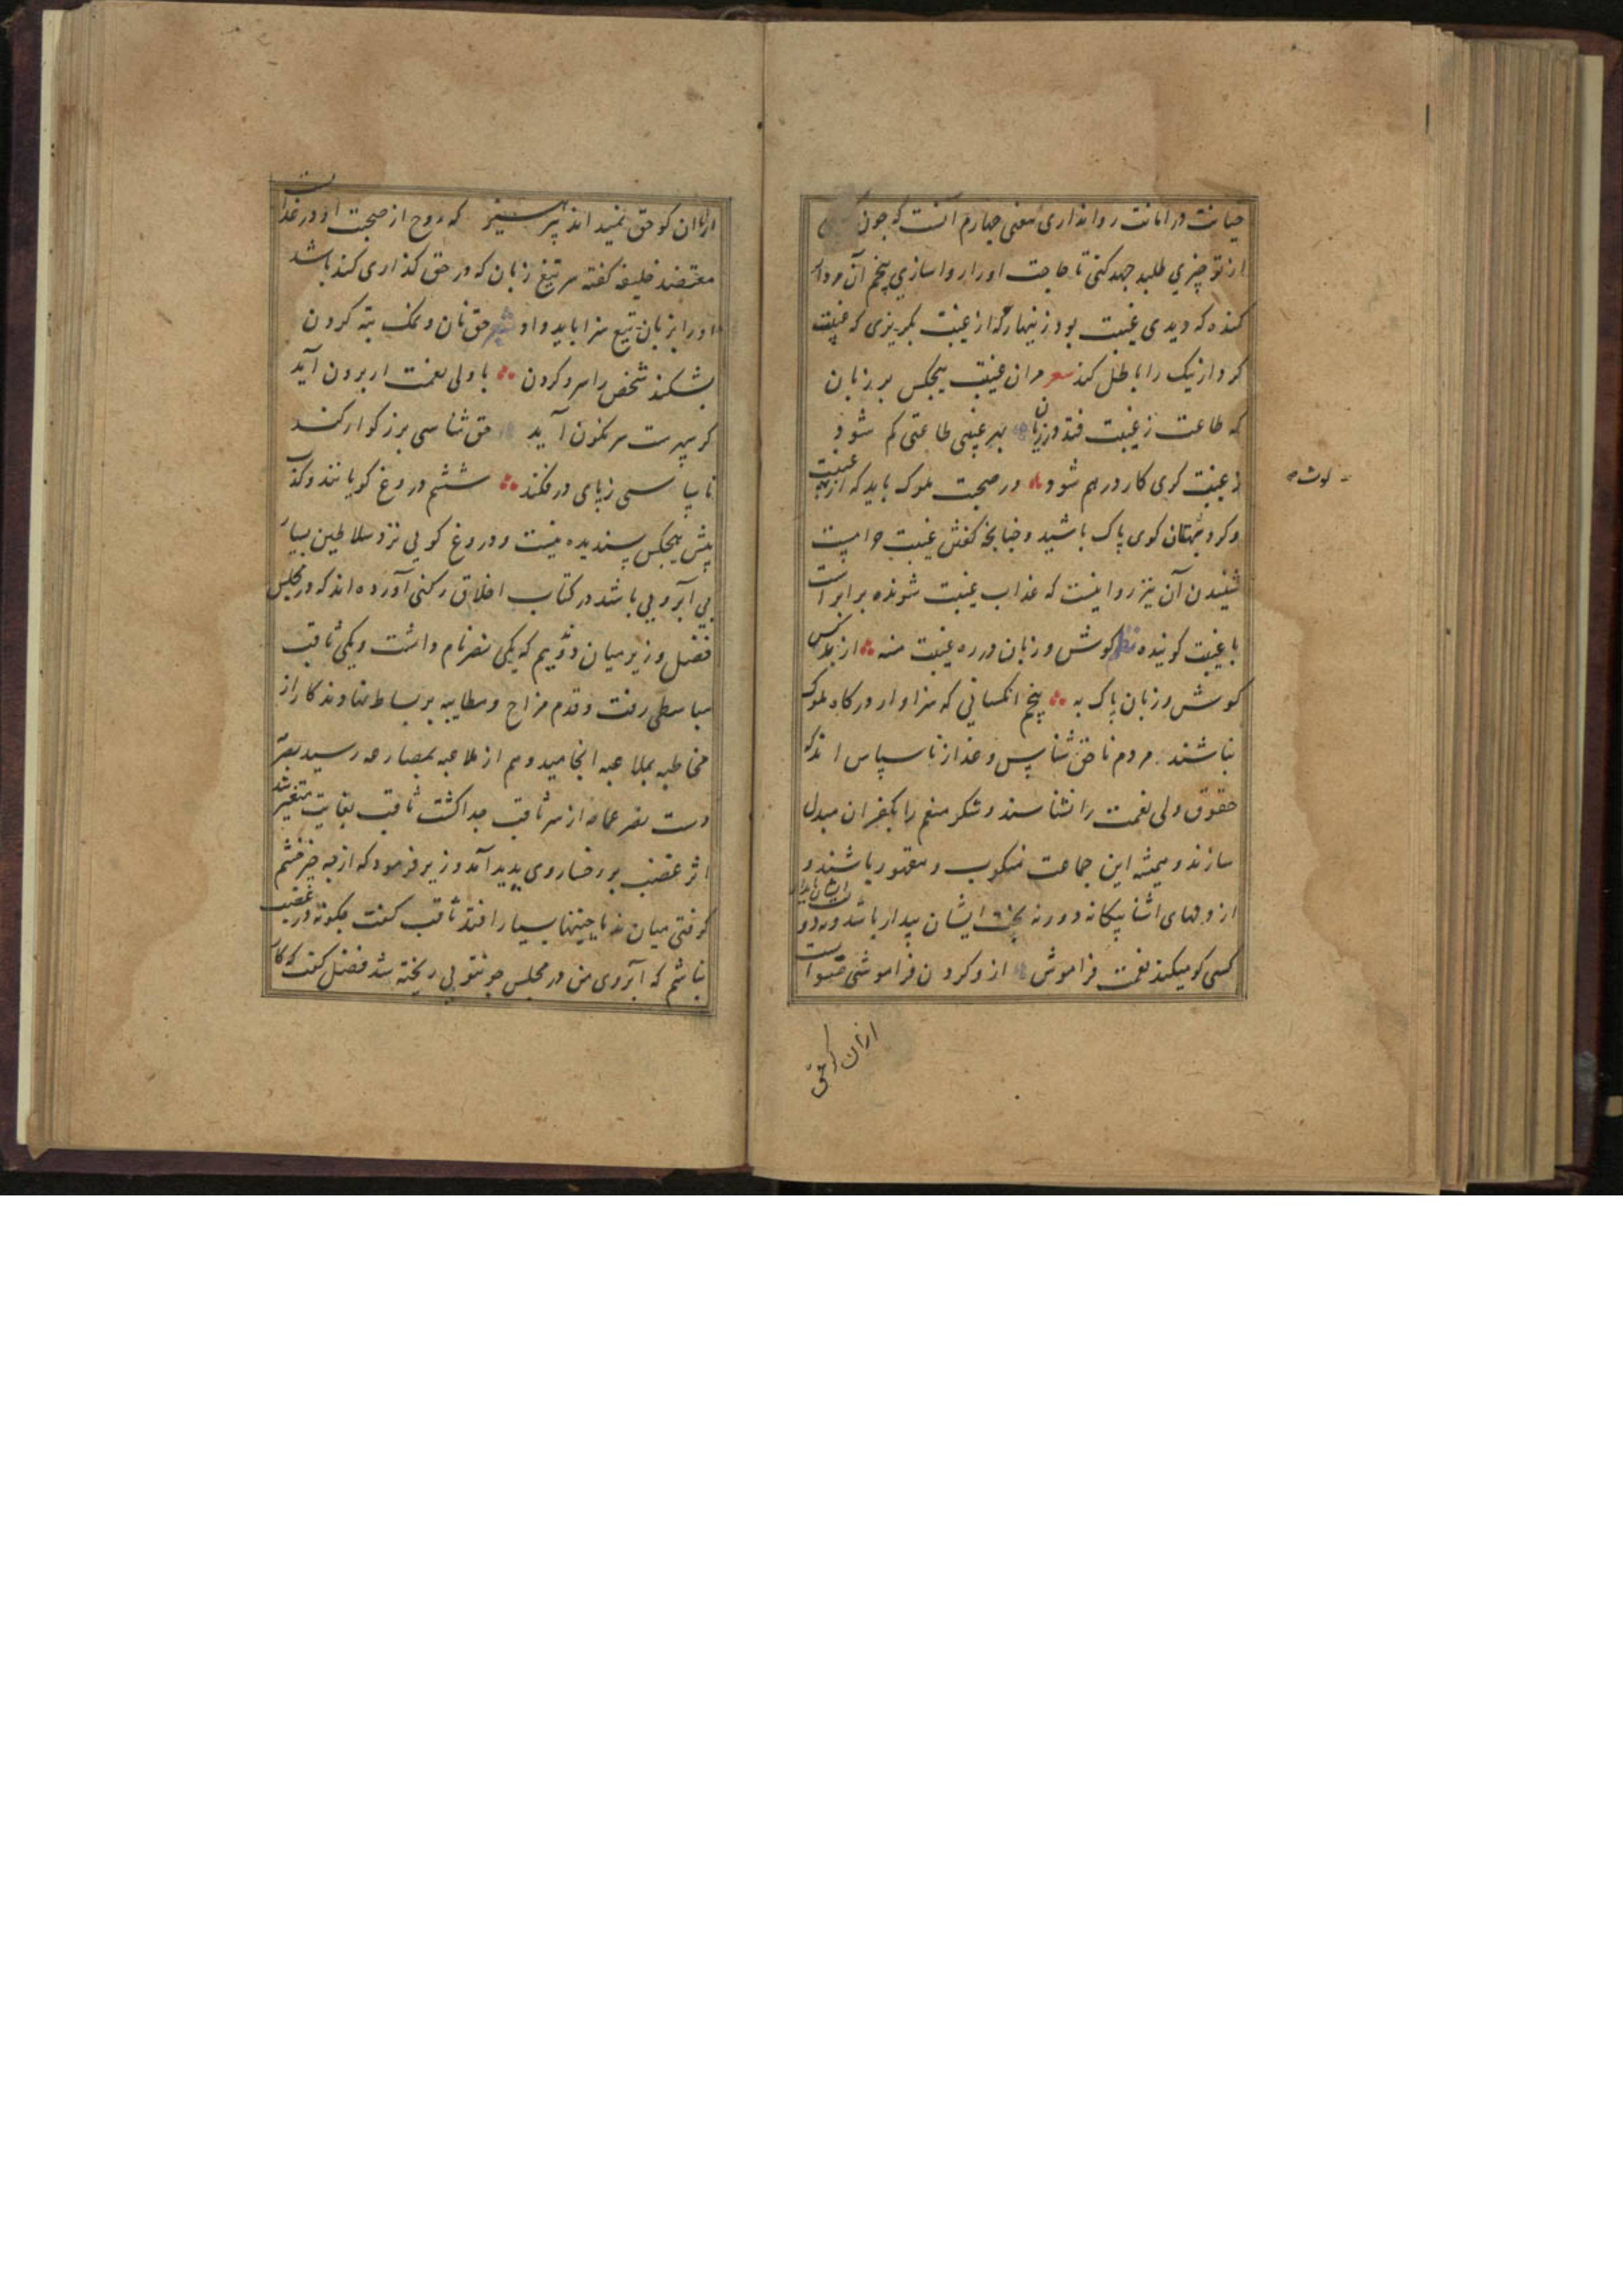 خیانت در امانت روا نداری معنی چهارم آنست که چون کسی
از تو چیزی طلبد جهد کنی تا حاجت او را روا سازی پنجم آن مردار
کنده که دیدی غیبت بود زینهار که از غیبت بگریزی که غیبت
کردار نیک را باطل کند شعر مران غیبت هیچکس بر زبان
که طاعت ز غیبت فتد در زیان بهر غیبتی طاعتی کم شود
ز غیبت گری کار درهم شود در صحبت ملوک باید که از غیبت
و کرد بهتان گوی پاک باشید و چنانچه گفتن غیبت حرامیست
شنیدن آن نیز روا نیست که عذاب غیبت شنونده برابر است
با غیبت گوینده نظم گوش و زبان در ره غیبت منه از بد کس
گوش و زبان پاک به پنجم انکسانی که سزاوار درگاه ملوک
نباشند مردم ناحق شناس و غدار ناسپاس اند که
حقوق ولی نعمت را نشناسند و شکر منعم را بکفران مبدل
سازند و همیشه این جماعت منکوب و مقهور باشند و
از وفهای اشنا بیکانه و ورنه بخت ایشان بیدار باشد
کسی کو میکند نعمت فراموش ازو کردن فراموشی صوابست
ازان کو حق
ازان کو حق نمیداند بپرهیز که روح از صحبت او در عذابست
معتضد خلیفه گفته سر تیغ زبان که در حق گذاری کند باشد
او را بزبان تیغ سزا باید داد شعر حق نان و نمک تبه کردن
بشکند شخص را سر و گردن با ولی نعمت ار برون آید
گر سپهرست سرنگون آید حق شناسی بزرگوار کند
ناسپاسی ز پای در فکند ششم دروغ گویانند و کذب
پیش هیچکس پسندیده نیست و دروغ گویی نزد سلاطین بسیار
بی آبرویی باشد در کتاب اخلاق رکنی آورده اند که در مجلس
فضل وزیر میان دو ندیم که یکی نصر نام داشت و یکی ثاقب
مباسطی رفت و قدم مزاح و مطایبه بر بساط نهادند کار از
مخاطبه بملاعبه انجامید و هم از ملاعبه بمصارعه رسید بضرب
دست نصر عمامه از سر ثاقب جدا گشت ثاقب بغایت متغیر شد
اثر غضب بر رخسار وی پدید آمد وزیر فرمود که از چه چیز خشم
گرفتی میان ندما چنینها بسیار افتد ثاقب گفت چگونه در غضب
نباشم که آبروی من در مجلس چو تویی ریخته شد فضل گفت که کار